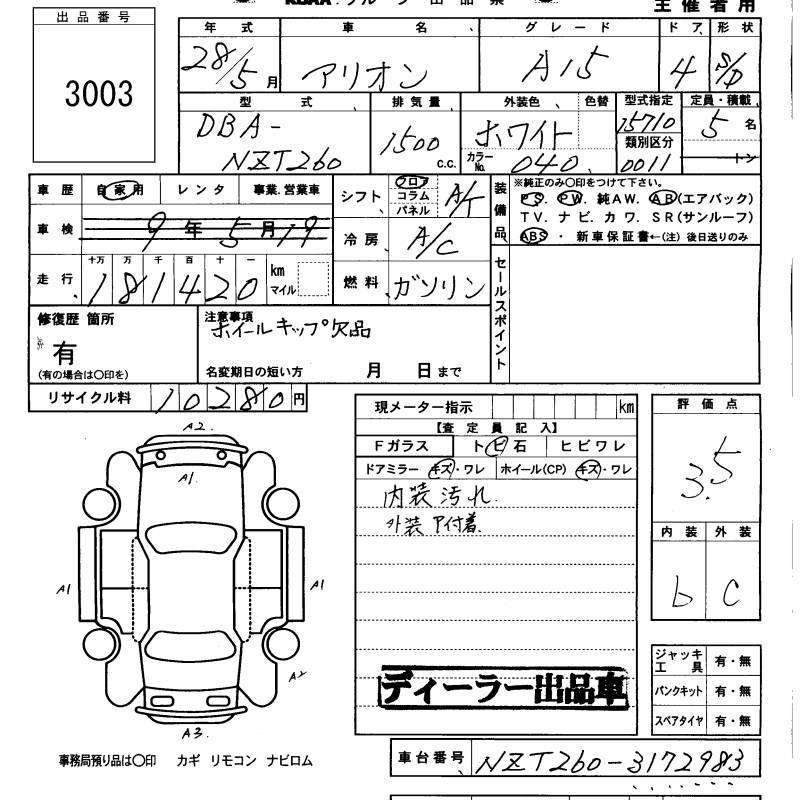 出品番号
3003
主催者用
年式 車名 グレード ドア 形状
28/5月 アリオン A15 4 S/D
型式 排気量 外装色 色替 型式指定 定員・積載
DBA-NZT260 1500 c.c. ホワイト 15710 5名
カラーNo. 040 類別区分 0011 トン
車歴 自家用 レンタ 事業.営業車
シフト フロア コラム パネル A/T
装備品 ※純正のみ〇印をつけて下さい。
PS. PW. 純AW. AB(エアバック)
TV. ナビ. カワ. SR(サンルーフ)
ABS ・ 新車保証書←(注) 後日送りのみ
車検 9年5月19
冷房 A/C
走行 十万 万 千 百 十 一
181420 km マイル
燃料 ガソリン
セールスポイント
修復歴 箇所
有
(有の場合は〇印を)
注意事項
ホイールキップ欠品
名変期日の短い方 月 日まで
リサイクル料 10280円
現メーター指示 km
【査定員記入】
Fガラス トビ石 ヒビワレ
ドアミラー キズ・ワレ ホイール(CP) キズ・ワレ
内装汚れ.
外装 ア付着.
ディーラー出品車
評価点
3.5
内装 外装
b c
ジャッキ工具 有・無
パンクキット 有・無
スペアタイヤ 有・無
A2.
A1.
A1
A1
A2
A3.
事務局預り品は〇印 カギ リモコン ナビロム
車台番号 NZT260-3172983